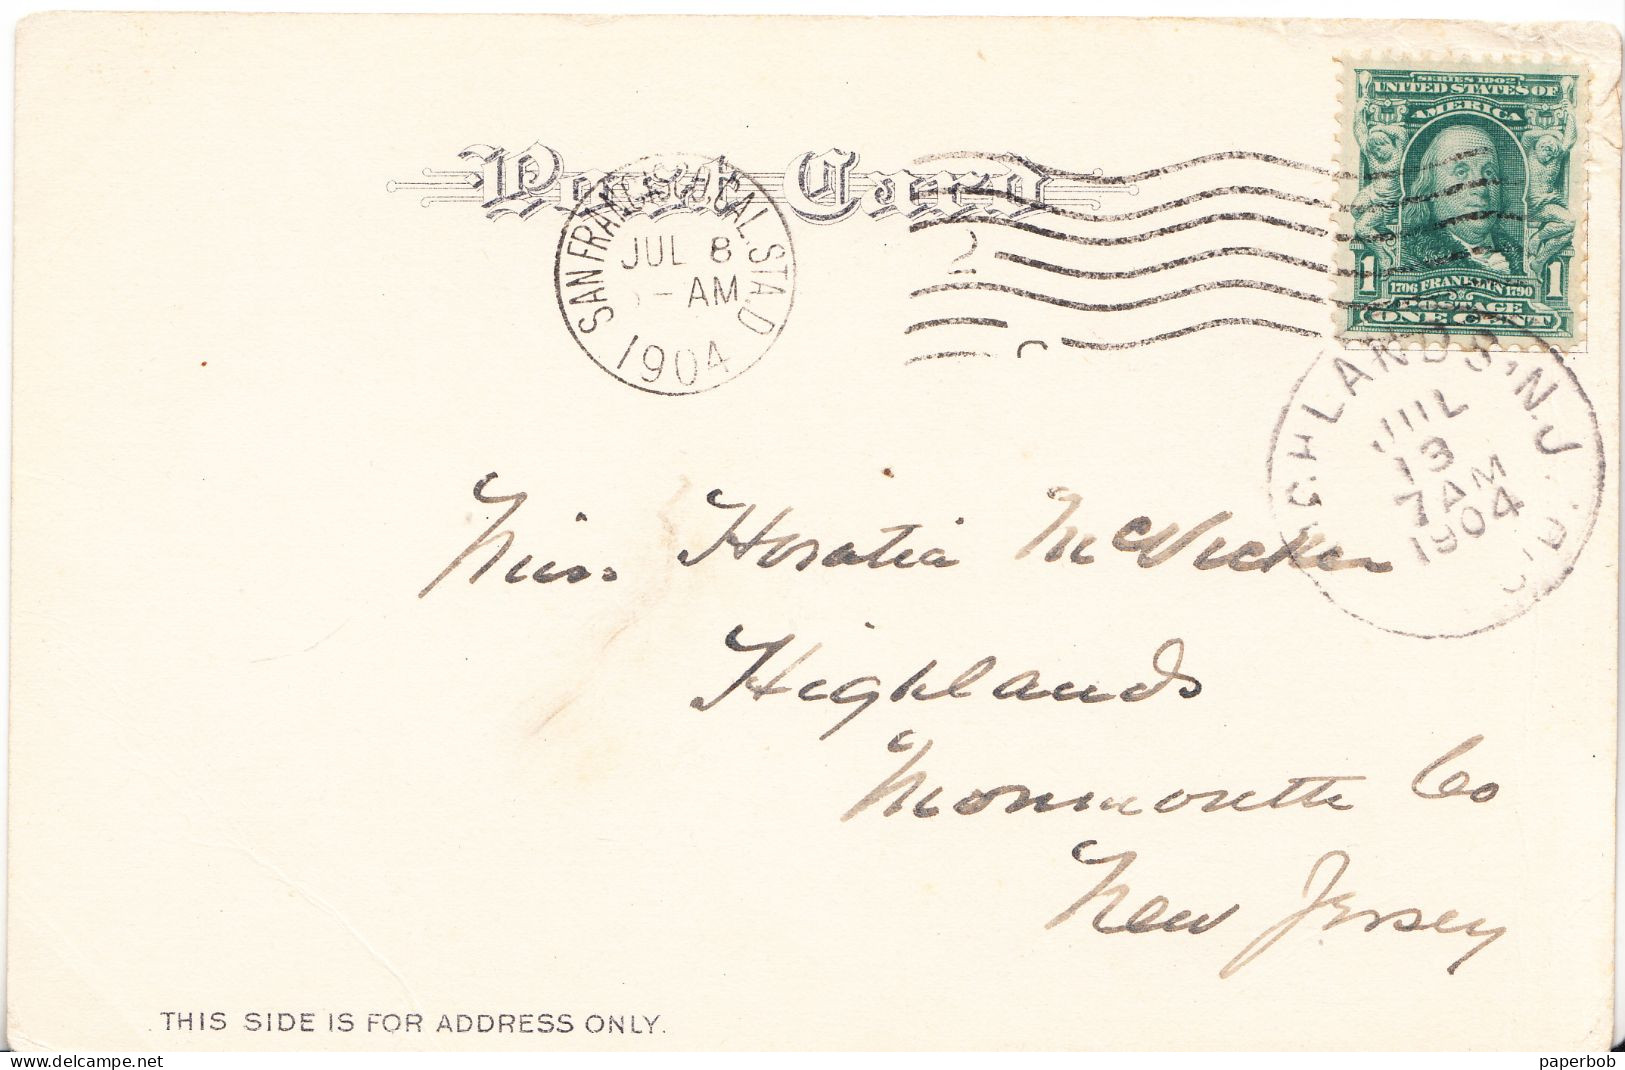 Post Card
SAN FRANCISCO, CAL. STA. D
JUL 8
-AM
1904
2
SERIES 1902
UNITED STATES OF
AMERICA
1 1
1706 FRANKLIN 1790
POSTAGE
ONE CENT
GHLANDS, N.J.
JUL
13
7AM
1904
Miss Horatia McVicker
Highlands
Monmoutth Co
New Jersey
THIS SIDE IS FOR ADDRESS ONLY.
delcampe.net
paperbob